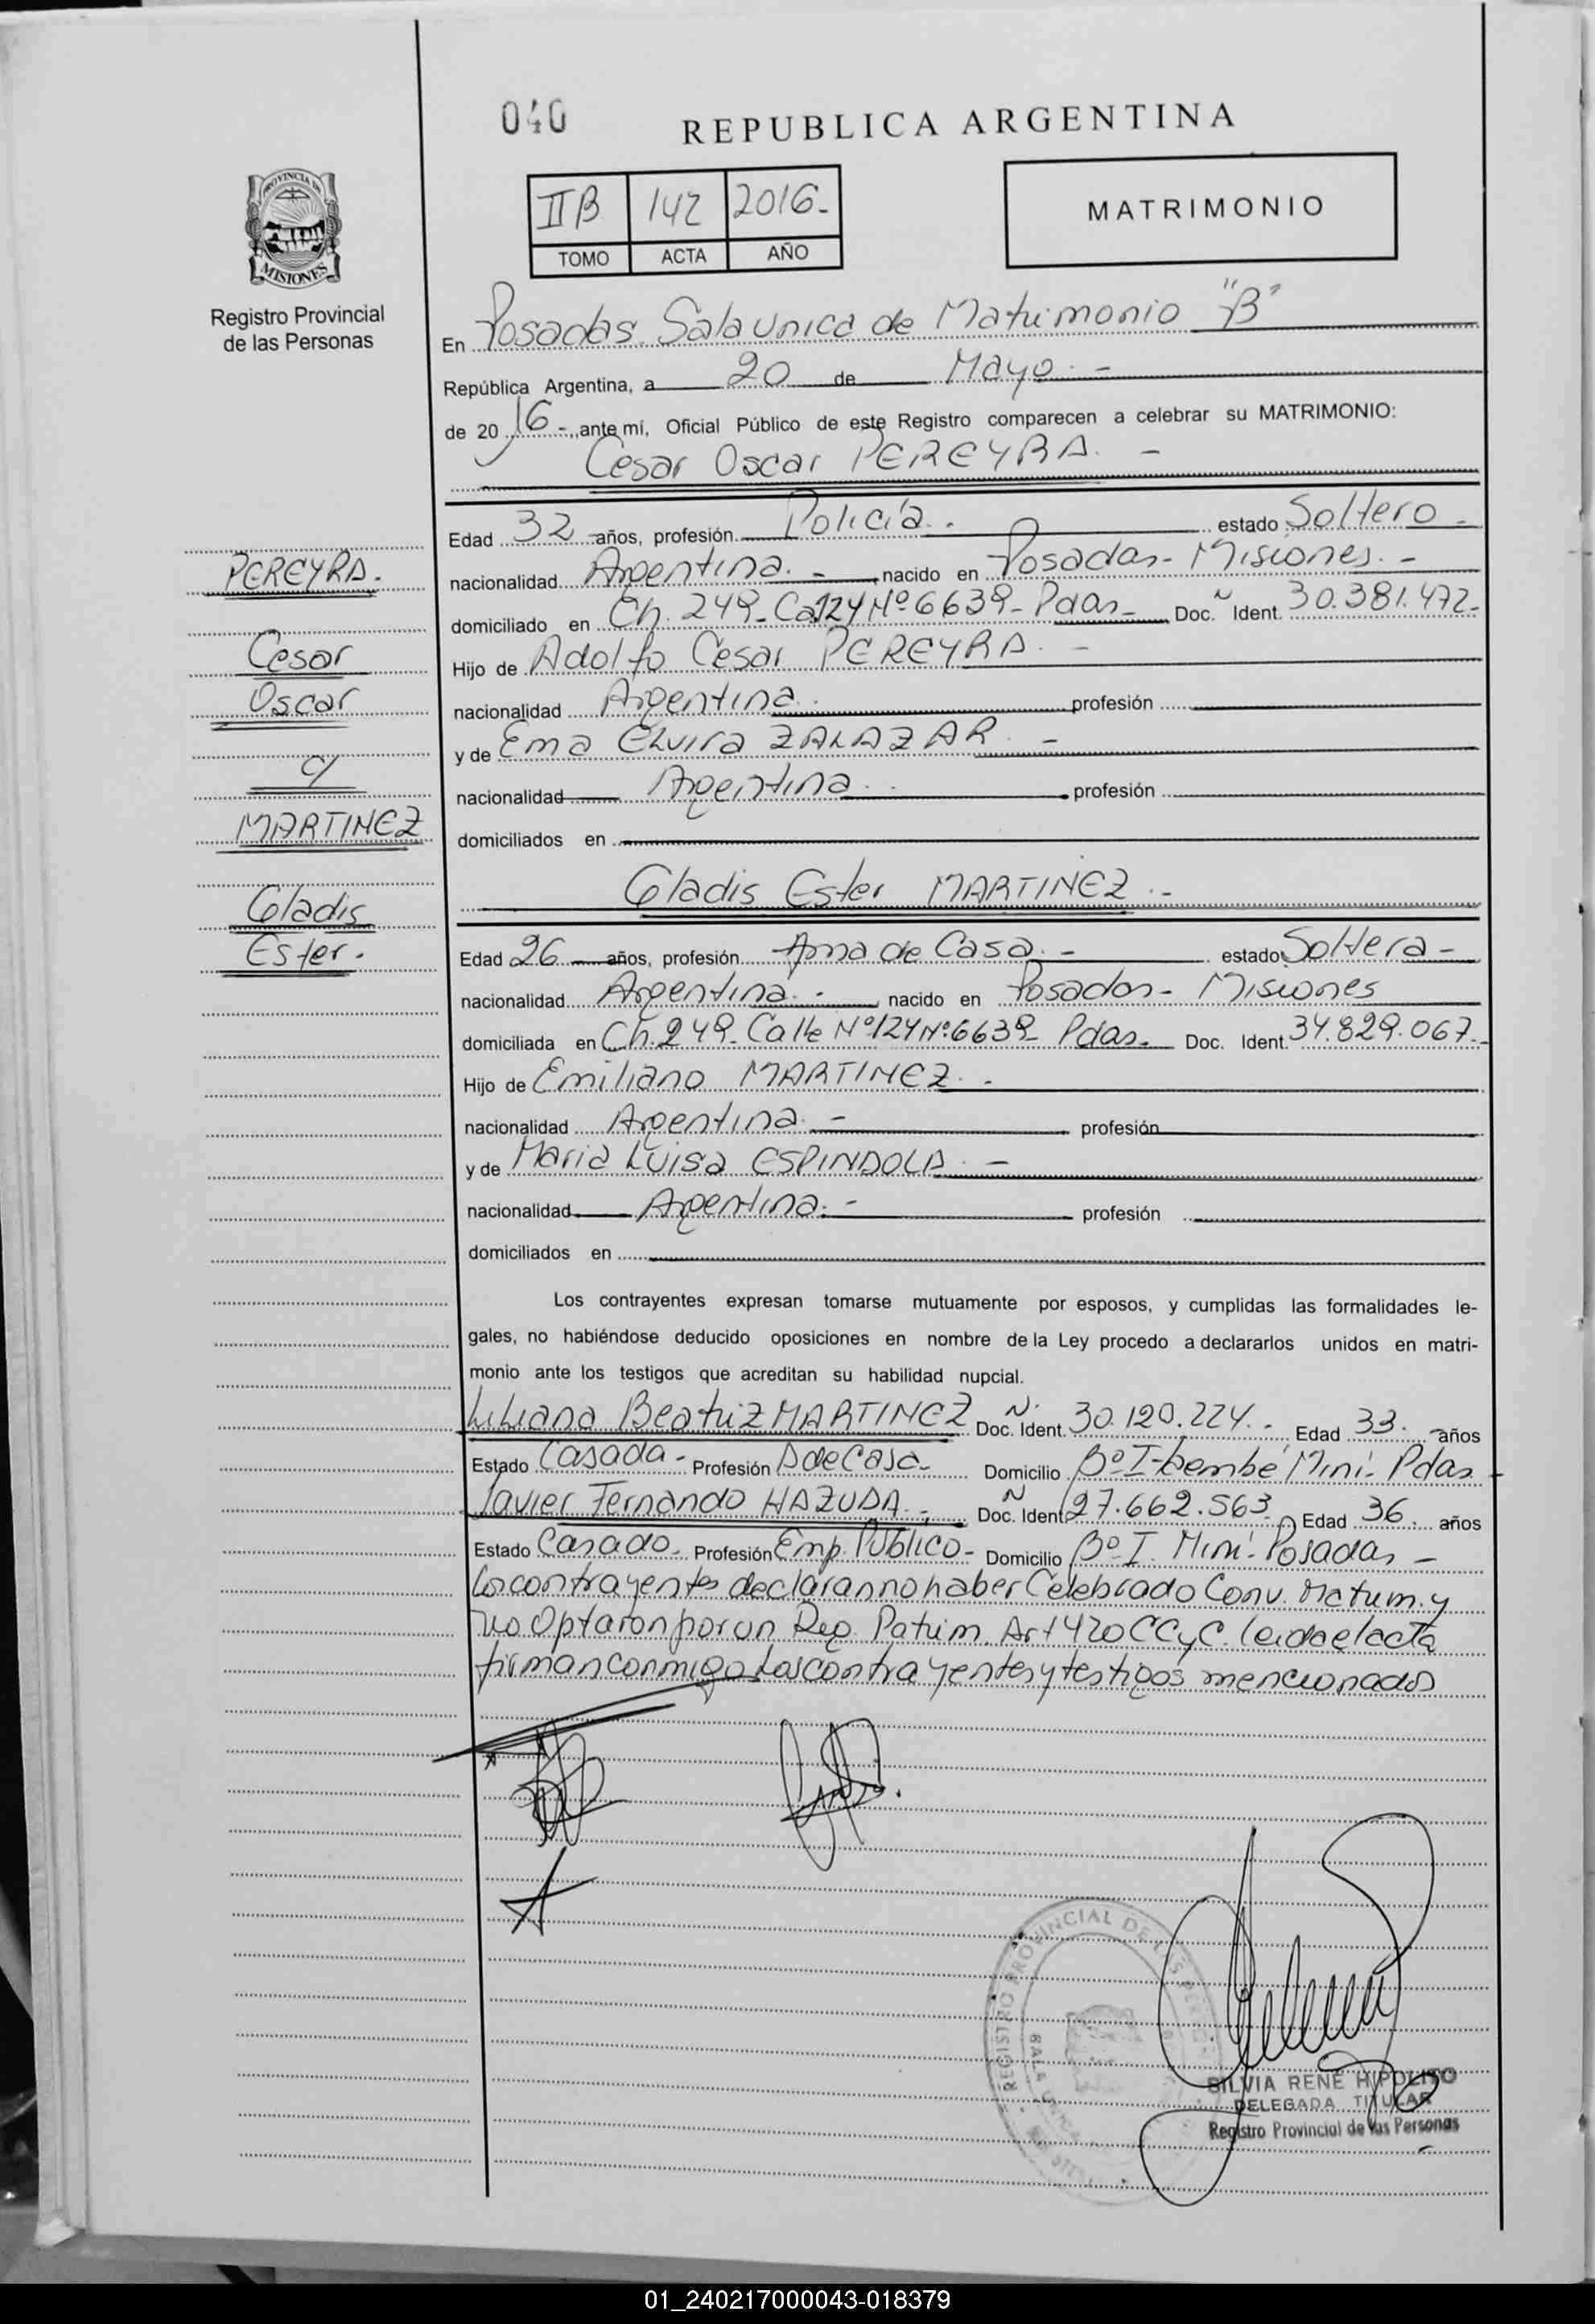 040
REPUBLICA ARGENTINA
PROVINCIA DE
MISIONES
Registro Provincial
de las Personas
IIB 142 2016-
TOMO ACTA AÑO
MATRIMONIO
En Posadas. Sala Unica de Matrimonio "B"
República Argentina, a 20 de Mayo. -
de 20 16 -, ante mí, Oficial Público de este Registro comparecen a celebrar su MATRIMONIO:
Cesar Oscar PEREYRA. -
Edad 32 años, profesión Policía. - estado Soltero -
nacionalidad Argentina. - nacido en Posadas - Misiones. -
domiciliado en Ch. 249 - Ca 124 Nº 6639 - Pdas - Doc. Ident. 30.381.472-
Hijo de Adolfo Cesar PEREYRA. -
nacionalidad Argentina. profesión
y de Ema Elvira ZALAZAR. -
nacionalidad Argentina. - profesión
domiciliados en
PEREYRA.
Cesar
Oscar
c/
MARTINEZ
Gladis
Ester.
Gladis Ester MARTINEZ. -
Edad 26 años, profesión Ama de Casa. - estado Soltera -
nacionalidad Argentina. - nacido en Posadas - Misiones
domiciliada en Ch. 249 - Calle Nº 124 Nº 6639 - Pdas. Doc. Ident. 34.829.067.-
Hijo de Emiliano MARTINEZ. -
nacionalidad Argentina. - profesión
y de Maria Luisa ESPINDOLA. -
nacionalidad Argentina. - profesión
domiciliados en
Los contrayentes expresan tomarse mutuamente por esposos, y cumplidas las formalidades le-
gales, no habiéndose deducido oposiciones en nombre de la Ley procedo a declararlos unidos en matri-
monio ante los testigos que acreditan su habilidad nupcial.
Liliana Beatriz MARTINEZ Doc. Ident. 30.120.224. - Edad 33. años
Estado Casada - Profesión A de Casa - Domicilio Bº I-bembé Mini - Pdas
Javier Fernando HAZUDA. - Doc. Ident. 27.662.563 Edad 36. años
Estado Casado - Profesión Emp. Público - Domicilio Bº I. Mini - Posadas -
Los contrayentes declaran no haber Celebrado Conv. Matrim. y
no Optaron por un Reg. Patrim. Art 420 CCyC. leida el acta
firman conmigo los contrayentes y testigos mencionados
REGISTRO PROVINCIAL DE LAS PERSONAS
SALA UNICA
SILVIA RENE HIPOLITO
DELEGADA TITULAR
Registro Provincial de las Personas
01_240217000043-018379